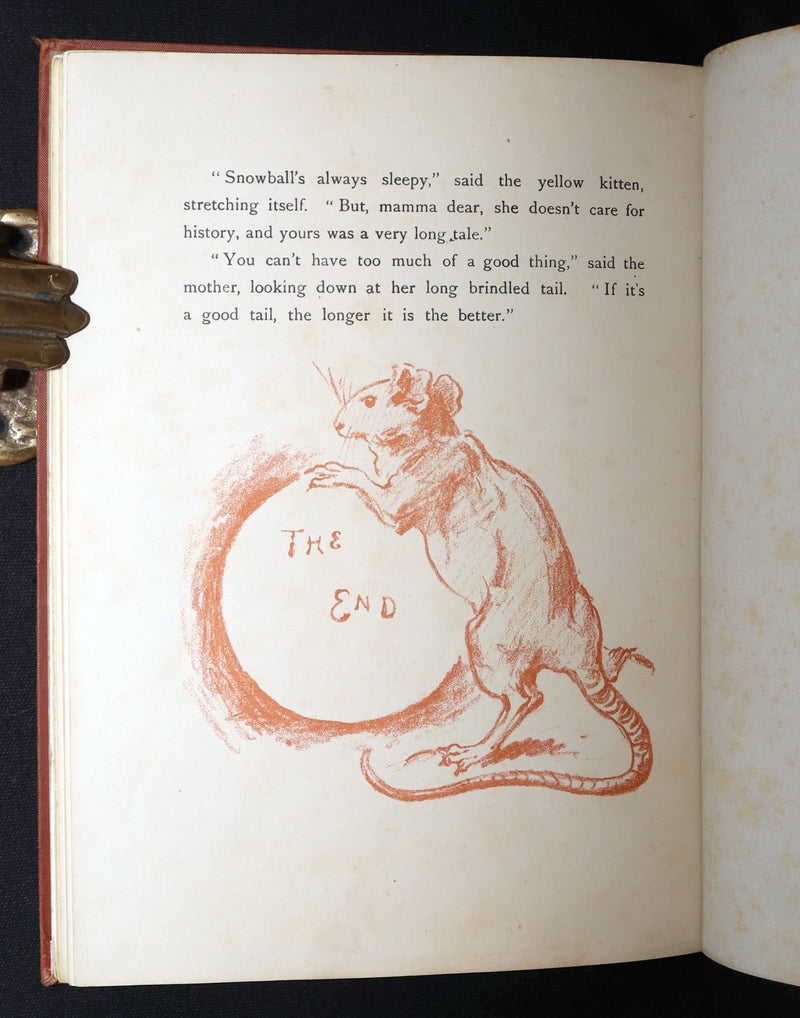 “ Snowball’s always sleepy,” said the yellow kitten,
stretching itself. “ But, mamma dear, she doesn’t care for
history, and yours was a very long tale.”
“ You can’t have too much of a good thing,” said the
mother, looking down at her long brindled tail. “ If it’s
a good tail, the longer it is the better.”
THE
END